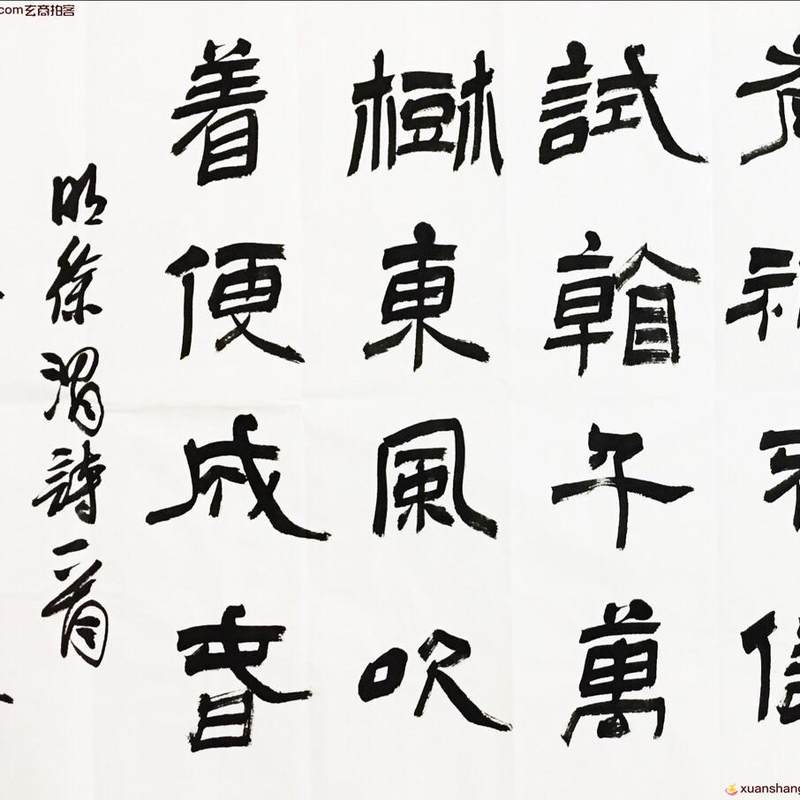 com玄商拍客
試看千萬
樹東風吹
着便成春
明徐渭詩一首
xuanshang